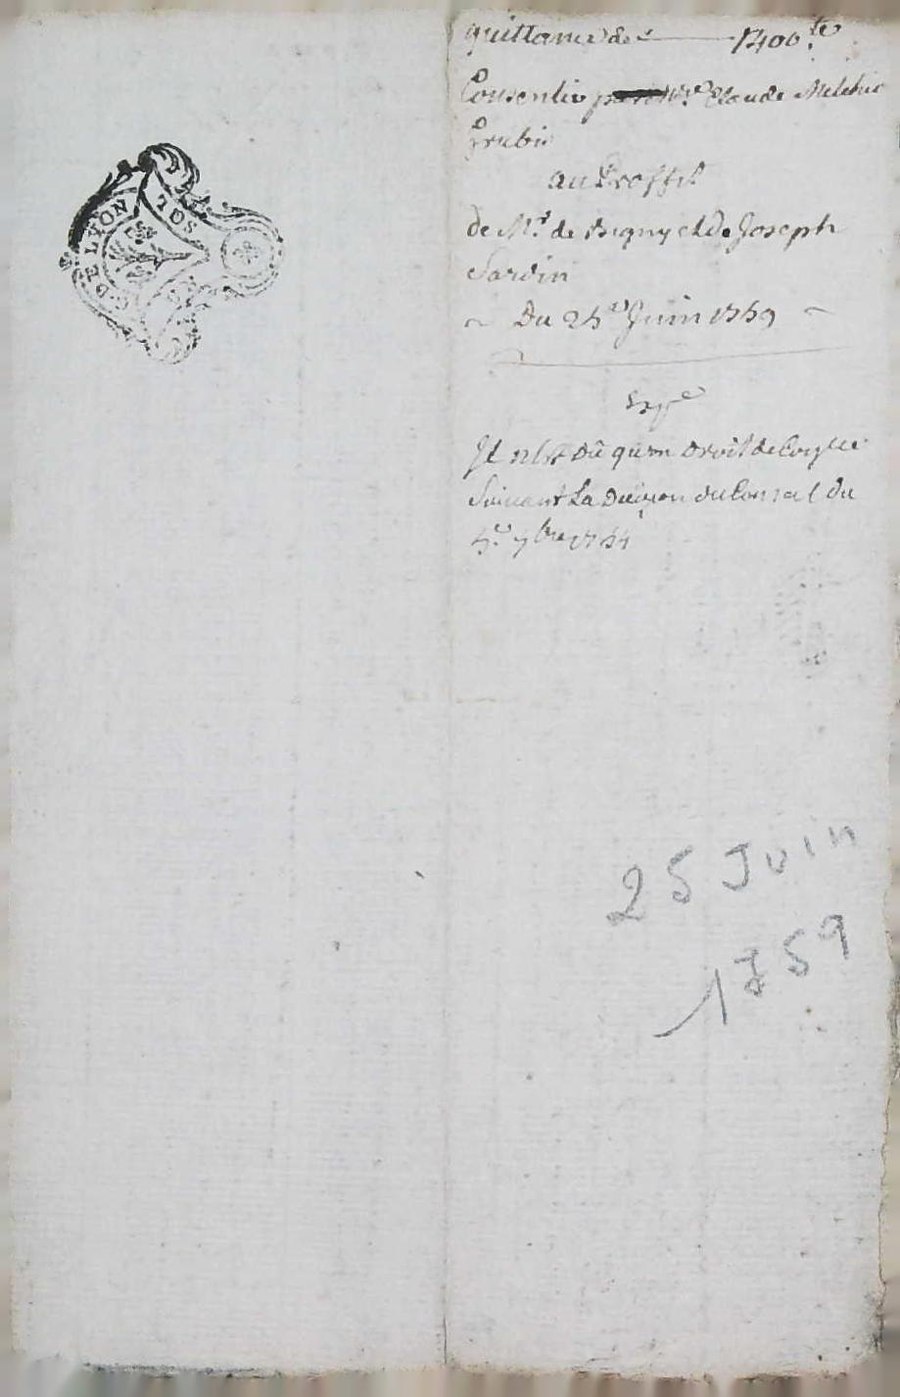 quittance de 1400 ₶
Consentie par Mre Claude Melchior
Grubis
au Proffit
de Mr de Bigny et de Joseph
Sardin
Du 25e Juin 1759
Expe
Il n'est dû qu'un droit de
Suivant La Decision du Conseil du
5e 7bre 1754
G. DE LYON
SOL
25 Juin
1759